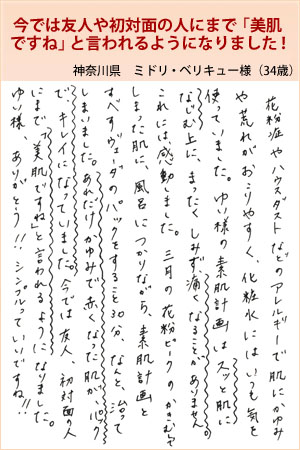 今では友人や初対面の人にまで「美肌
ですね」と言われるようになりました！
神奈川県　ミドリ・ベリキュー様（34歳）
花粉症やハウスダストなどのアレルギーで肌にかゆみ
や荒れがおこりやすく、化粧水にはいつも気を
使っていました。ゆい様の素肌計画はスッと肌に
なじむ上に、まったくしみず、痛くなることがありません。
これには、感動しました。三月の花粉ピークのかきむし
しまった肌に、風呂につかりながら、素肌計画と
すべすヴェーダのパックをすること30分、なんと、治って
しまいました。あれだけかゆみで赤くなった肌が、パック
で、キレイになっていました。今では友人、初対面の人
にまで「美肌ですね」と言われるようになりました。
ゆい様、ありがとう!!シンプルっていいですね!!